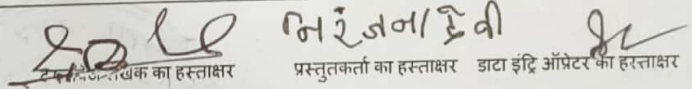 निरंजना देवी
लेखक का हस्ताक्षर प्रस्तुतकर्ता का हस्ताक्षर डाटा इंट्रि ऑप्रेटर का हस्ताक्षर